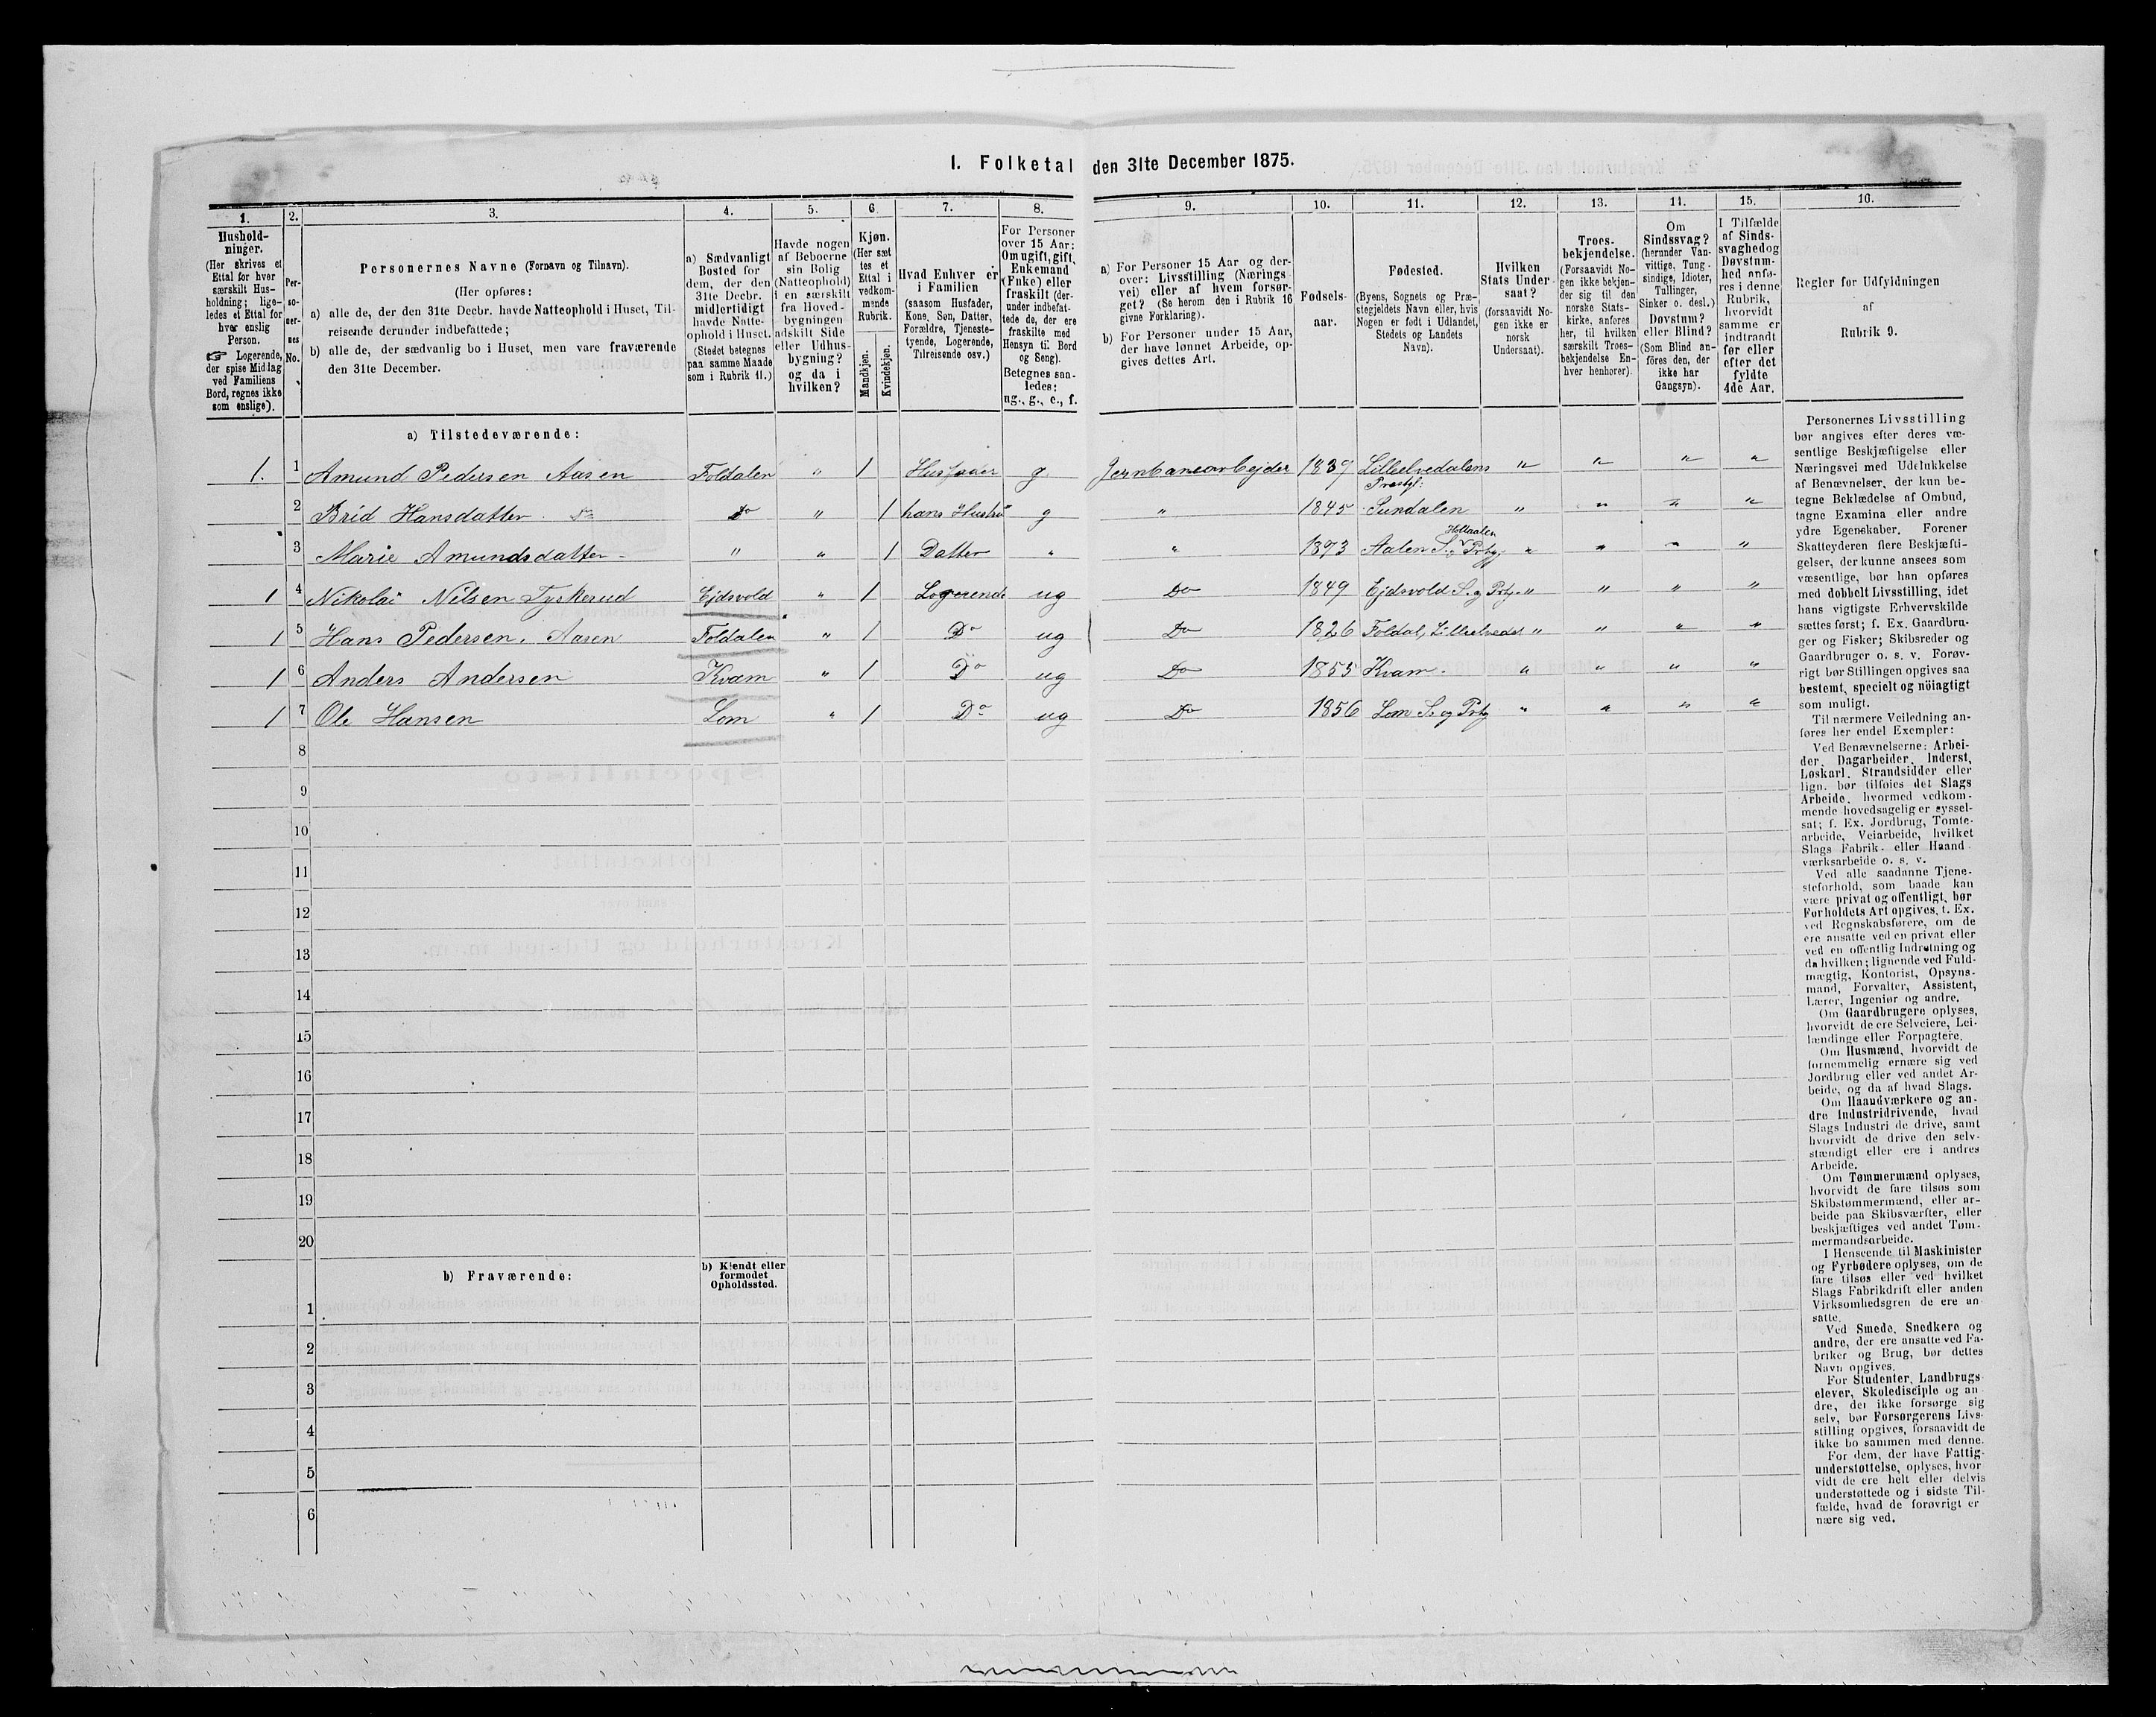 I. Folketal den 31te December 1875.
1. 2. 3. 4. 5. 6. 7. 8. 9. 10. 11. 12. 13. 14. 15. 16.
Hushold-
ninger.
(Her skrives et
Ettal for hver
særskilt Hus-
holdning; lige-
ledes et Ettal for
hver enslig
Person.
☞ Logerende,
der spise Middag
ved Familiens
Bord, regnes ikke
som enslige).
Per-
so-
ner-
nes
No.
Personernes Navne (Fornavn og Tilnavn).
(Her opføres:
a) alle de, der den 31te Decbr. havde Natteophold i Huset, Til-
reisende derunder indbefattede;
b) alle de, der sædvanlig bo i Huset, men vare fraværende
den 31te December.
a) Sædvanligt
Bosted for
dem, der den
31te Decbr.
midlertidigt
havde Natte-
ophold i Huset.
(Stedet betegnes
paa samme Maade
som i Rubrik 11.)
Havde nogen
af Beboerne
sin Bolig
(Natteophold)
i en særskilt
fra Hoved-
bygningen
adskilt Side
eller Udhus-
bygning?
og da i
hvilken?
Kjøn.
(Her sæt
tes et
Ettal i
vedkom-
mende
Rubrik.
Mandkjøn.
Kvindekjøn.
Hvad Enhver er
i Familien
(saasom Husfader,
Kone, Søn, Datter,
Forældre, Tjeneste-
tyende, Logerende,
Tilreisende osv.)
For Personer
over 15 Aar:
Om ugift, gift,
Enkemand
(Enke) eller
fraskilt (der-
under indbefat-
tede de, der ere
fraskilte med
Hensyn til Bord
og Seng).
Betegnes saa-
ledes:
ug., g., e., f.
a) For Personer 15 Aar og der-
over: Livsstilling (Nærings
vei) eller af hvem forsør-
get? (Se herom den i Rubrik 16
givne Forklaring).
b) For Personer under 15 Aar,
der have lønnet Arbeide, op-
gives dettes Art.
Fødsels-
aar.
Fødested.
(Byens, Sognets og Præ-
stegjeldets Navn eller, hvis
Nogen er født i Udlandet,
Stedets og Landets
Navn).
Hvilken
Stats Under-
saat?
(forsaavidt No-
gen ikke er
norsk
Undersaat).
Troes-
bekjendelse.
(Forsaavidt No-
gen ikke bekjen-
der sig til den
norske Stats-
kirke, anføres
her, til hvilken
særskilt Troes-
bekjendelse En-
hver henhører).
Om
Sindssvag?
(herunder Van-
vittige, Tung-
sindige, Idioter,
Tullinger,
Sinker o. desl.)
Døvstum?
eller Blind?
(Som Blind an-
føres den, der
ikke har
Gangsyn).
I Tilfælde
af Sinds-
svaghed og
Døvstum-
hed anfø-
res i denne
Rubrik,
hvorvidt
samme er
indtraadt
før eller
efter det
fyldte
4de Aar.
Regler for Udfyldningen
af
Rubrik 9.
a) Tilstedeværende:
1. 1 Amund Pedersen Aasen Foldalen " 1 Husfader g Jernbanearbejder 1839 Lilleelvedalens Præstgj: " " " "
2 Brid Hansdatter Do " 1 hans Hustru g " 1845 Sundalen " " " "
3 Marie Amundsdatter " " 1 Datter " " 1873 Aalen S. Holtaalen Prtgj " " " "
1 4 Nikolai Nilsen Tyskerud Ejdsvold " 1 Logerende ug Do 1849 Ejdsvold S. og Prtg " " " "
1 5 Hans Pedersen Aasen Foldalen " 1 Do ug Do 1826 Foldal, Lilleelvedal " " " "
1 6 Anders Andersen Kvam " 1 Do ug Do 1855 Kvam " " " "
1 7 Ole Hansen Lom " 1 Do ug Do 1856 Lom S. og Prtg " " " "
8
9
10
11
12
13
14
15
16
17
18
19
20
b) Fraværende:
b) Kjendt eller
formodet
Opholdssted.
1
2
3
4
5
6
Personernes Livsstilling
bør angives efter deres væ-
sentlige Beskjæftigelse eller
Næringsvei med Udelukkelse
af Benævnelser, der kun be-
tegne Beklædelse af Ombud,
tagne Examina eller andre
ydre Egenskaber. Forener
Skatteyderen flere Beskjæfti-
gelser, der kunne ansees som
væsentlige, bør han opføres
med dobbelt Livsstilling, idet
hans vigtigste Erhvervskilde
sættes først; f. Ex. Gaardbru-
ger og Fisker; Skibsreder og
Gaardbruger o. s. v. Forøv-
rigt bør Stillingen opgives saa
bestemt, specielt og nöiagtigt
som muligt.
Til nærmere Veiledning an-
føres her endel Exempler:
Ved Benævnelserne: Arbei-
der, Dagarbeider, Inderst,
Løskarl, Strandsidder eller
lign. bør tilføies det Slags
Arbeide, hvormed vedkom-
mende hovedsagelig er syssel-
sat; f. Ex. Jordbrug, Tomte-
arbeide, Veiarbeide, hvilket
Slags Fabrik- eller Haand-
værksarbeide o. s. v.
Ved alle saadanne Tjene-
steforhold, som baade kan
være privat og offentligt, bør
Forholdets Art opgives, t. Ex.
ved Regnskabsførere, om de
ere ansatte ved en privat eller
ved en offentlig Indretning og
da hvilken; lignende ved Fuld-
mægtig, Kontorist, Opsyns-
mand, Forvalter, Assistent,
Lærer, Ingeniør og andre.
Om Gaardbrugere oplyses,
hvorvidt de ere Selveiere, Lei-
lændinge eller Forpagtere.
Om Husmænd, hvorvidt de
fornemmelig ernære sig ved
Jordbrug eller ved andet Ar-
beide, og da af hvad Slags.
Om Haandværkere og an-
dre Industridrivende, hvad
Slags Industri de drive, samt
hvorvidt de drive den selv-
stændigt eller ere i andres
Arbeide.
Om Tømmermænd oplyses,
hvorvidt de fare tilsøs som
Skibstømmermænd, eller ar-
beide paa Skibsværfter, eller
beskjæftiges ved andet Tøm-
mermandsarbeide.
I Henseende til Maskinister
og Fyrbødere oplyses, om de
fare tilsøs eller ved hvilket
Slags Fabrikdrift eller anden
Virksomhedsgren de ere an-
satte.
Ved Smede, Snedkere og
andre, der ere ansatte ved Fa-
briker og Brug, bør dettes
Navn opgives.
For Studenter, Landbrugs-
elever, Skoledisciple og an-
dre, der ikke forsørge sig
selv, bør Forsørgerens Livs-
stilling opgives, forsaavidt de
ikke bo sammen med denne.
For dem, der have Fattig-
understøttelse, oplyses, hvor-
vidt de ere helt eller delvis
understøttede og i sidste Til-
fælde, hvad de forøvrigt er
nære sig ved.